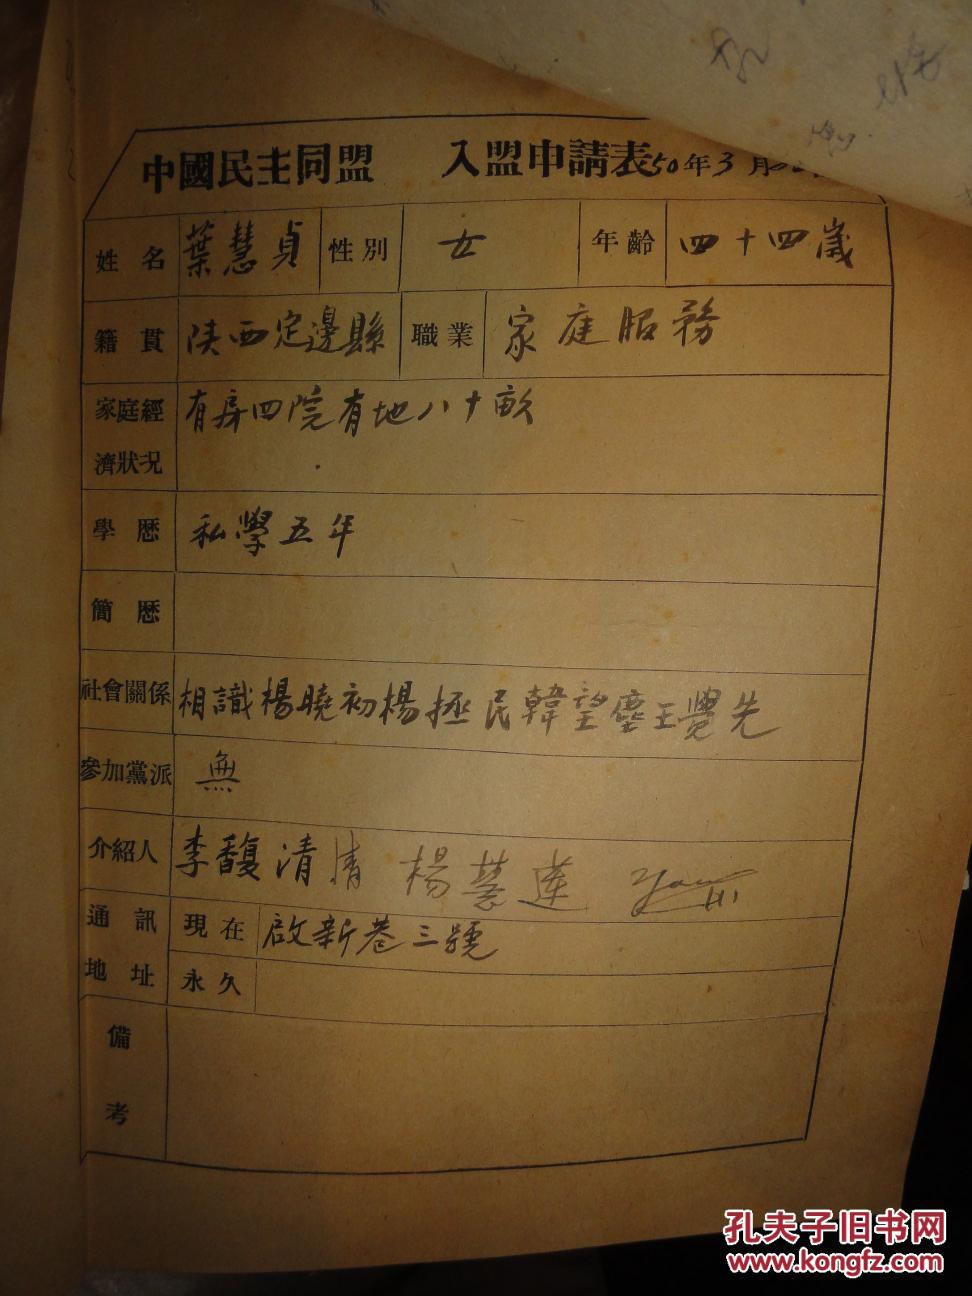 中國民主同盟 入盟申請表 50年3月
姓名 葉慧貞 性別 女 年齡 四十四歲
籍貫 陕西定邊縣 職業 家庭服務
家庭經濟狀况 有房四院有地八十畝
學歷 私學五年
簡歷
社會關係 相識楊曉初楊拯民韓望塵王覺先
參加黨派 無
介紹人 李馥清 清 楊慧蓮
通訊地址 現在 啟新巷三號
永久
備考
孔夫子旧书网
www.kongfz.com